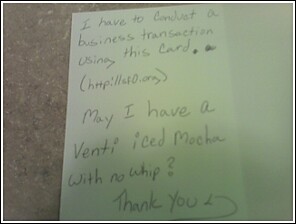 I have to conduct a
business transaction
using this card.
(http://sf0.org)
May I have a
Venti iced Mocha
with no whip?
Thank You